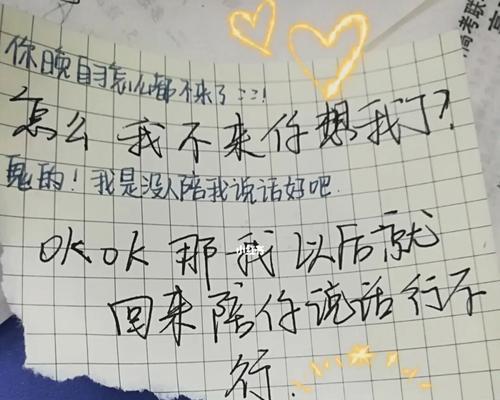 你晚自习怎么都不来了:::!
怎么 我不来你想我了?
鬼的!我是没人陪我说话好吧.
OKOK 那我以后就
回来陪你说话行不
行.
小红书
高考联